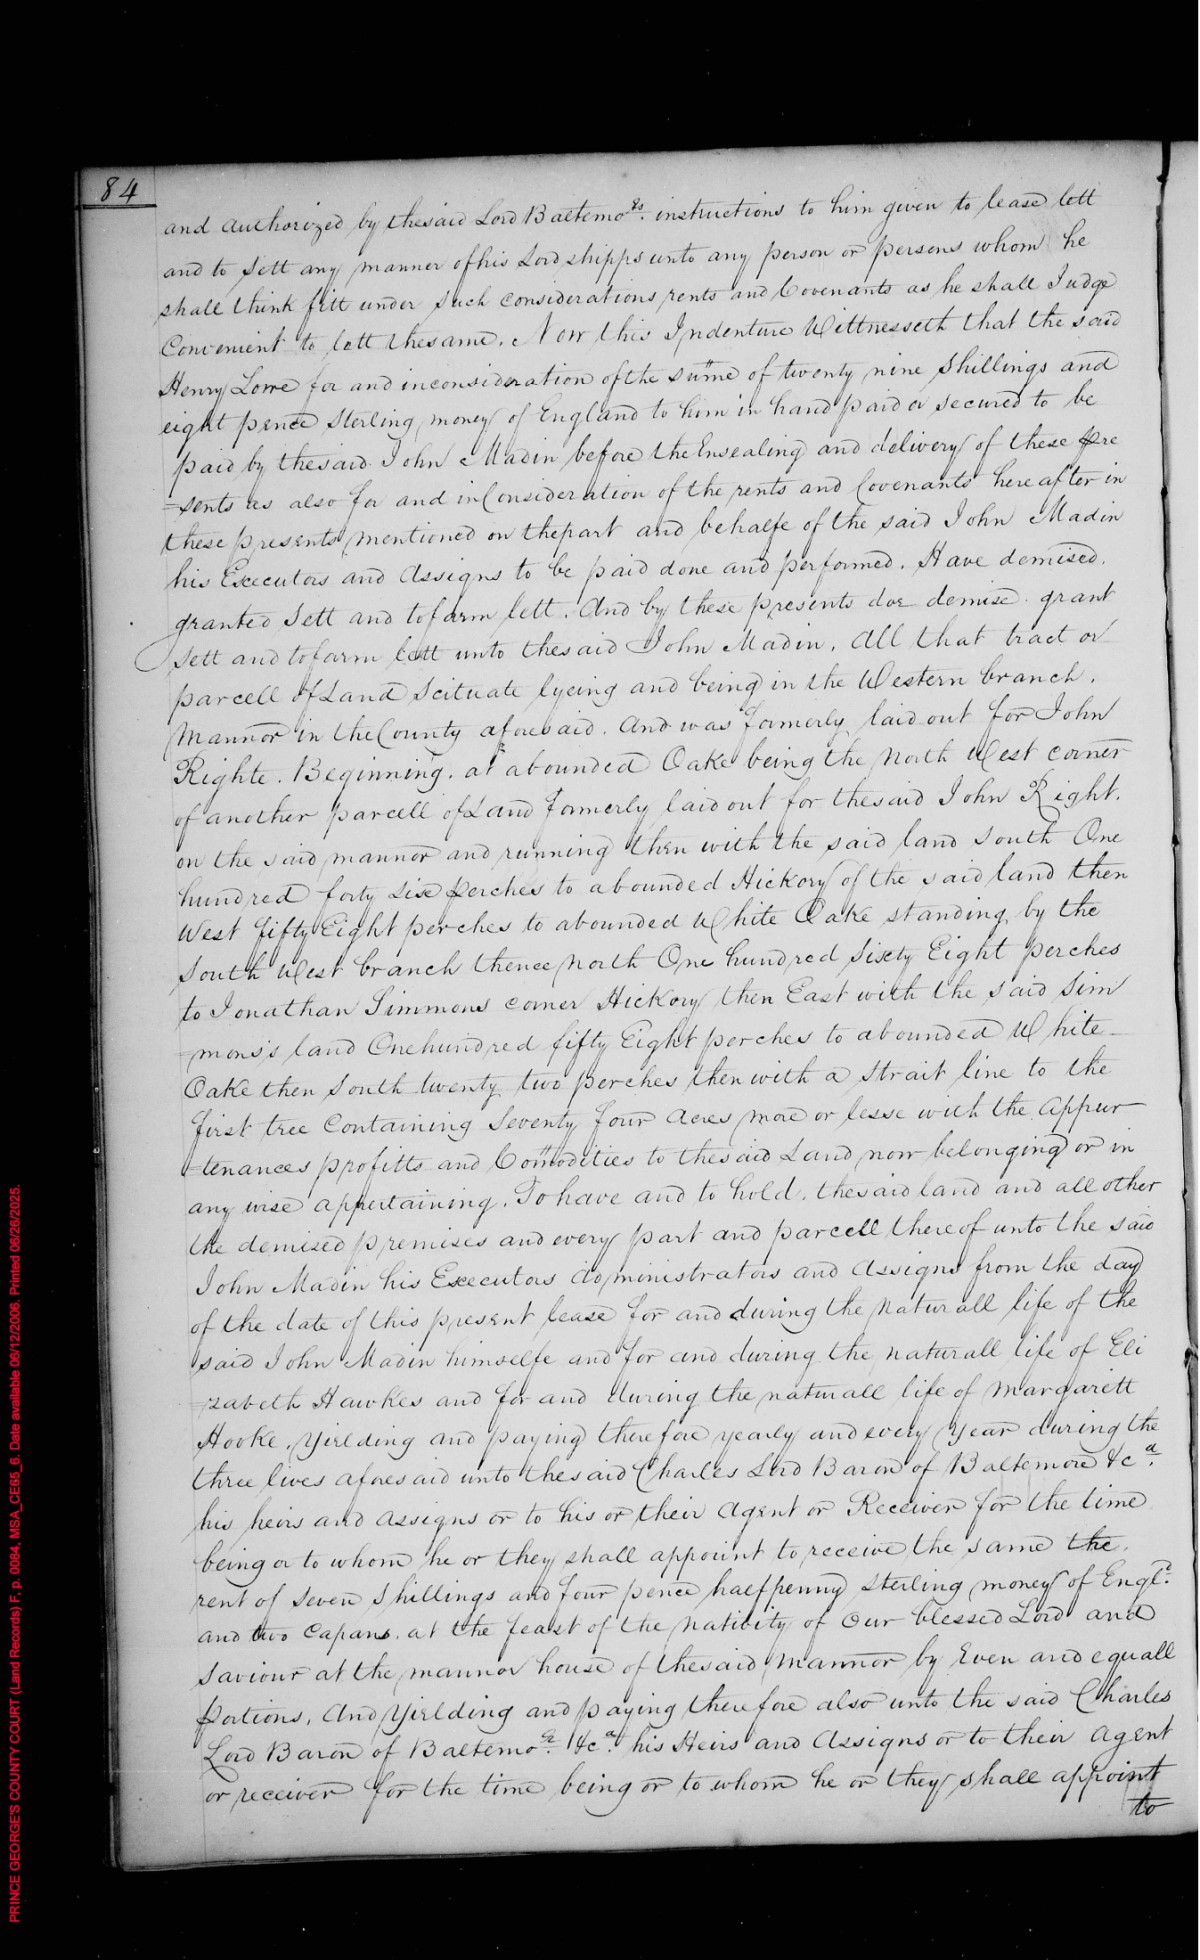 84
and authorized by thesaid Lord Baltemo^rs. instructions to him given to lease lett
and to Sett any manner ofhis Lordshipps unto any person or persons whom he
shall think fitt under such considerations rents and Covenants as he shall Judge
Convenient to lett thesame. Now this Indenture Wittnesseth that the said
Henry Lowe for and inconsideration ofthe sum̅e of twenty nine Shillings and
eight pence Sterling money of England to him in hand paid or secured to be
paid by thesaid John Madin before the Ensealing and delivery of these pre
=sents as also for and inConsideration of the rents and Covenants hereafter in
these presents mentioned on thepart and behalfe of the said John Madin
his Executors and Assigns to be paid done and performed. Have demised.
granted Sett and tofarm lett. And by these presents doe demise grant
Sett and tofarm lett unto thesaid John Madin. All that tract or
parcell of Land Scituate lyeing and being in the Western branch.
Mannor in the County aforesaid. And was formerly laid out for John
Righte. Beginning. at abounded Oake being the North West corner
of another parcell of Land formerly laid out for thesaid John Right.
on the said mannor and running then with the said land South One
hundred forty Six perches to abounded Hickory of the said land then
West fifty Eight perches to abounded White Oake standing by the
South West branch thence North One hundred Sixty Eight perches
to Jonathan Simmons corner Hickory then East with the said Sim
=mons's land Onehundred fifty Eight perches to abounded White
Oake then South twenty two perches then with a strait line to the
first tree Containing Seventy four Acres more or lesse with the Appur
=tenances profitts and Com̅odities to thesaid Land now belonging or in
any wise appertaining. To have and to hold. thesaid land and all other
the demised premises and every part and parcell thereof unto the said
John Madin his Executors Administrators and Assigns from the day
of the date of this present lease for and during the Naturall life of the
said John Madin himselfe and for and during the naturall life of Eli
=zabeth Hawkes and for and during the naturall life of Margarett
Hooke. Yielding and paying therefore yearly and every Year during the
three lives aforesaid unto thesaid Charles Lord Baron of Baltemore &c^a.
his heirs and Assigns or to his or their Agent or Receiver for the time
being or to whom he or they shall appoint to receive the same the.
rent of Seven Shillings and four pence halfpenny Sterling money of Engl^d.
and two Capans. at the feast of the Nativity of Our blessed Lord and
Saviour at the mannor house of thesaid Mannor by Even and equall
portions. And Yielding and paying therefore also unto the said Charles
Lord Baron of Baltemo^re. &c^a. his Heirs and Assigns or to their Agent
or receiver for the time being or to whom he or they shall appoint
to
PRINCE GEORGE'S COUNTY COURT (Land Records) F, p. 0084, MSA_CE65_6. Date available 06/12/2006. Printed 06/26/2025.